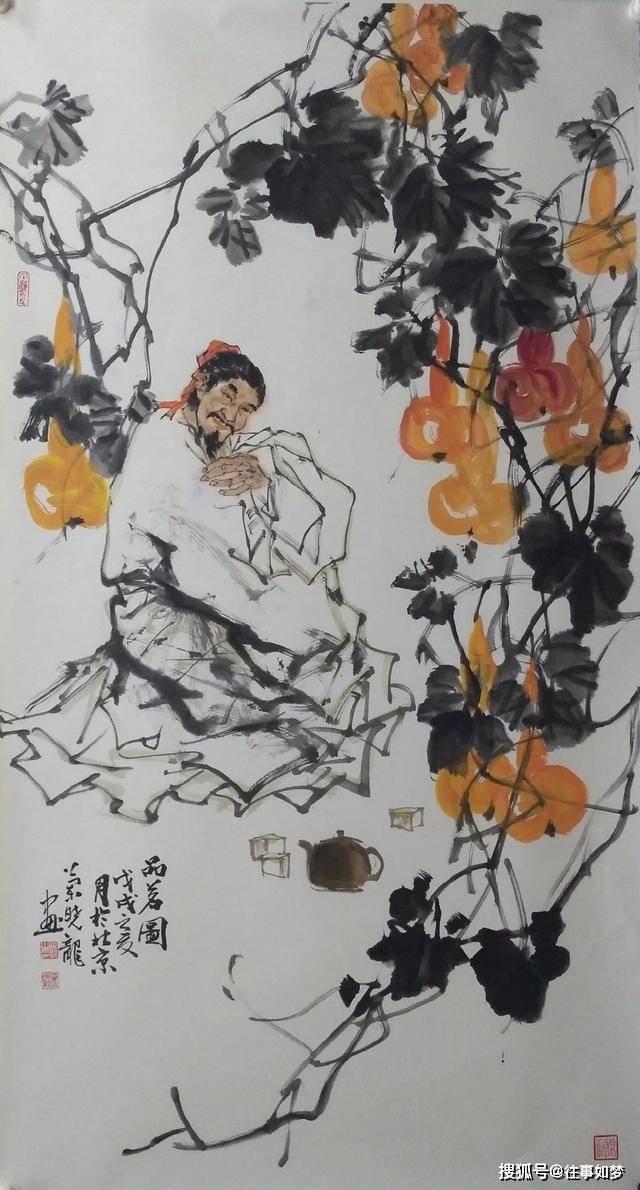 品茗圖
戊戌之夏
月於北京
晓龍
画
搜狐号@往事如梦